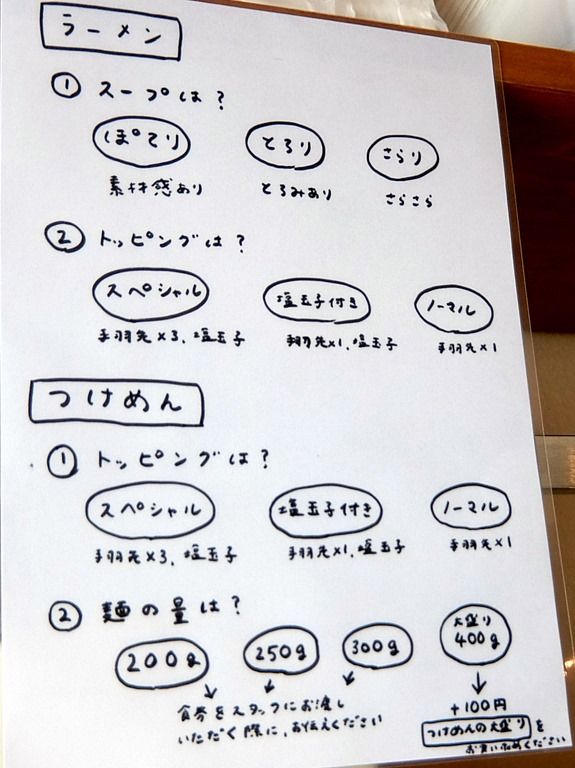 ラーメン
① スープは?
ぽてり とろり さらり
素材感あり とろみあり さらさら
② トッピングは?
スペシャル 塩玉子付き ノーマル
手羽先×3、塩玉子 手羽先×1、塩玉子 手羽先×1
つけめん
① トッピングは?
スペシャル 塩玉子付き ノーマル
手羽先×3、塩玉子 手羽先×1、塩玉子 手羽先×1
② 麺の量は?
200g 250g 300g 大盛り
400g
食券をスタッフにお渡し
いただく際に、お伝えください
+100円
つけめんの大盛りを
お買い求めください